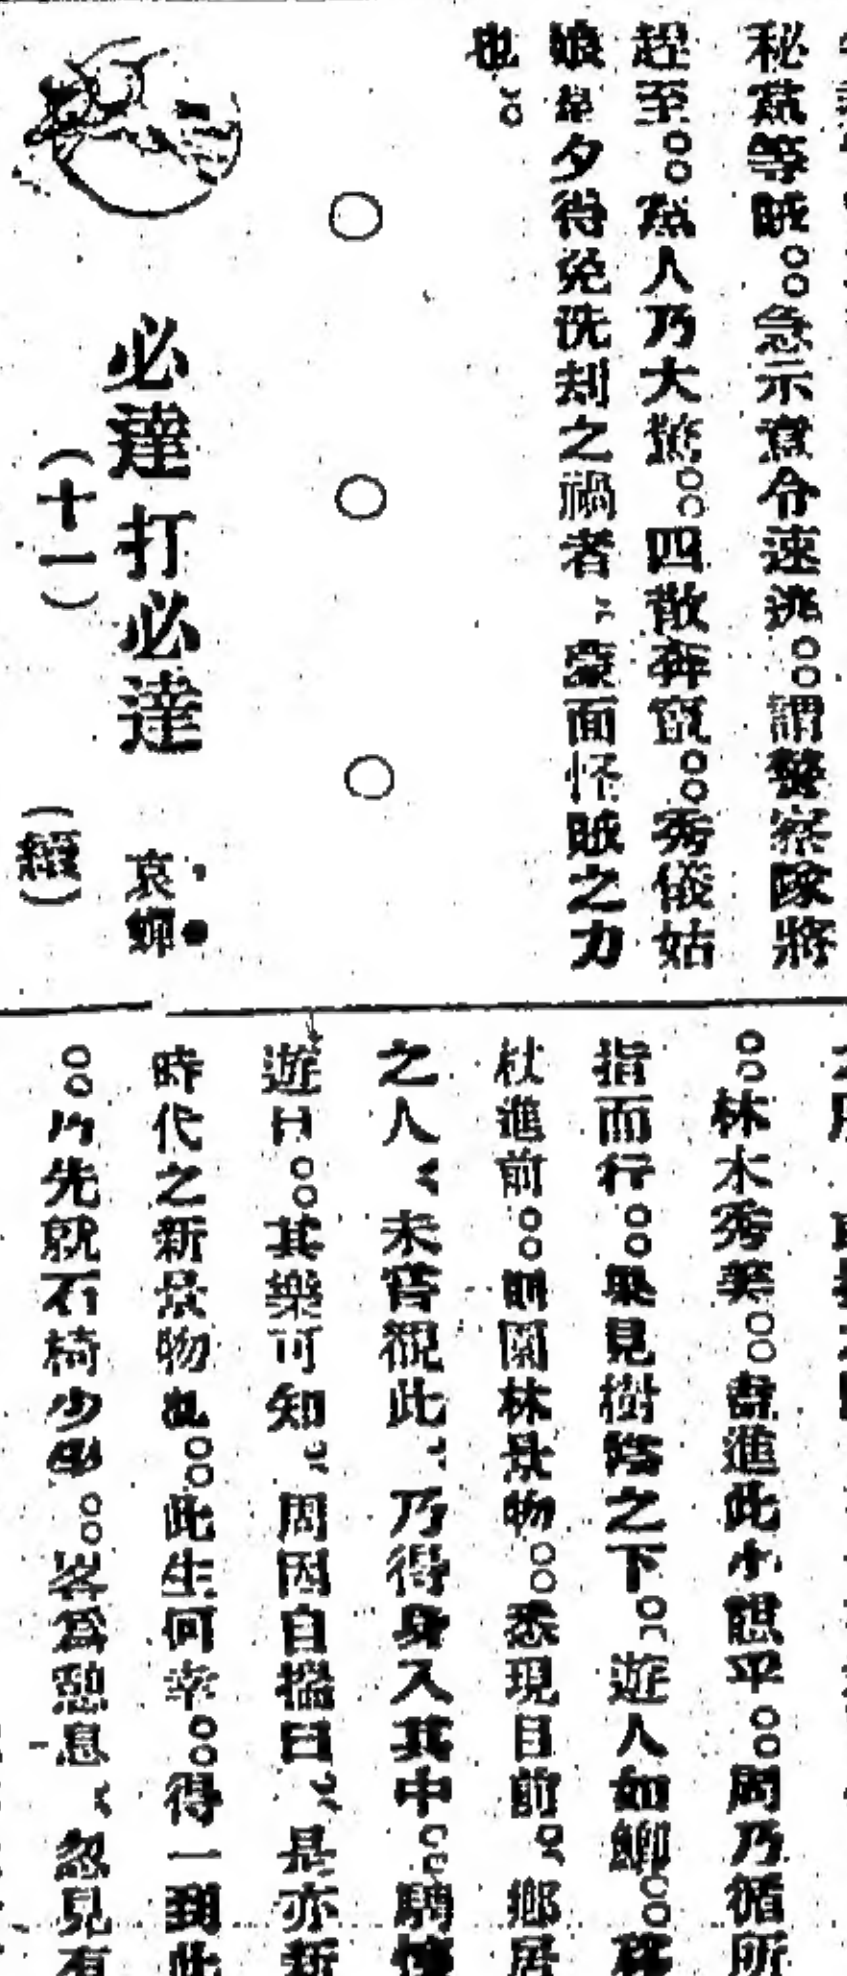 秘黨等賊。。急示意令速逃。。謂警察隊將
趕至。。黨人乃大驚。。四散奔竄。。秀儀姑
娘是夕得免洗刦之禍者、蒙面怪賊之力
也。
○ ○ ○
必達打必達 哀蟬
(十一) (續)
。。林木秀美。。盍進此小憩乎。。周乃循所
指而行。。果見樹陰之下。。遊人如鯽。。
杖進前。。則園林景物。。悉現目前。。鄉居
之人、未嘗覩此、乃得身入其中。。騁懷
遊目。。其樂可知、周因自搵曰、是亦新
時代之新景物也。。此生何幸。。得一到此
。。乃先就石椅少坐。。畧為憩息、忽見有